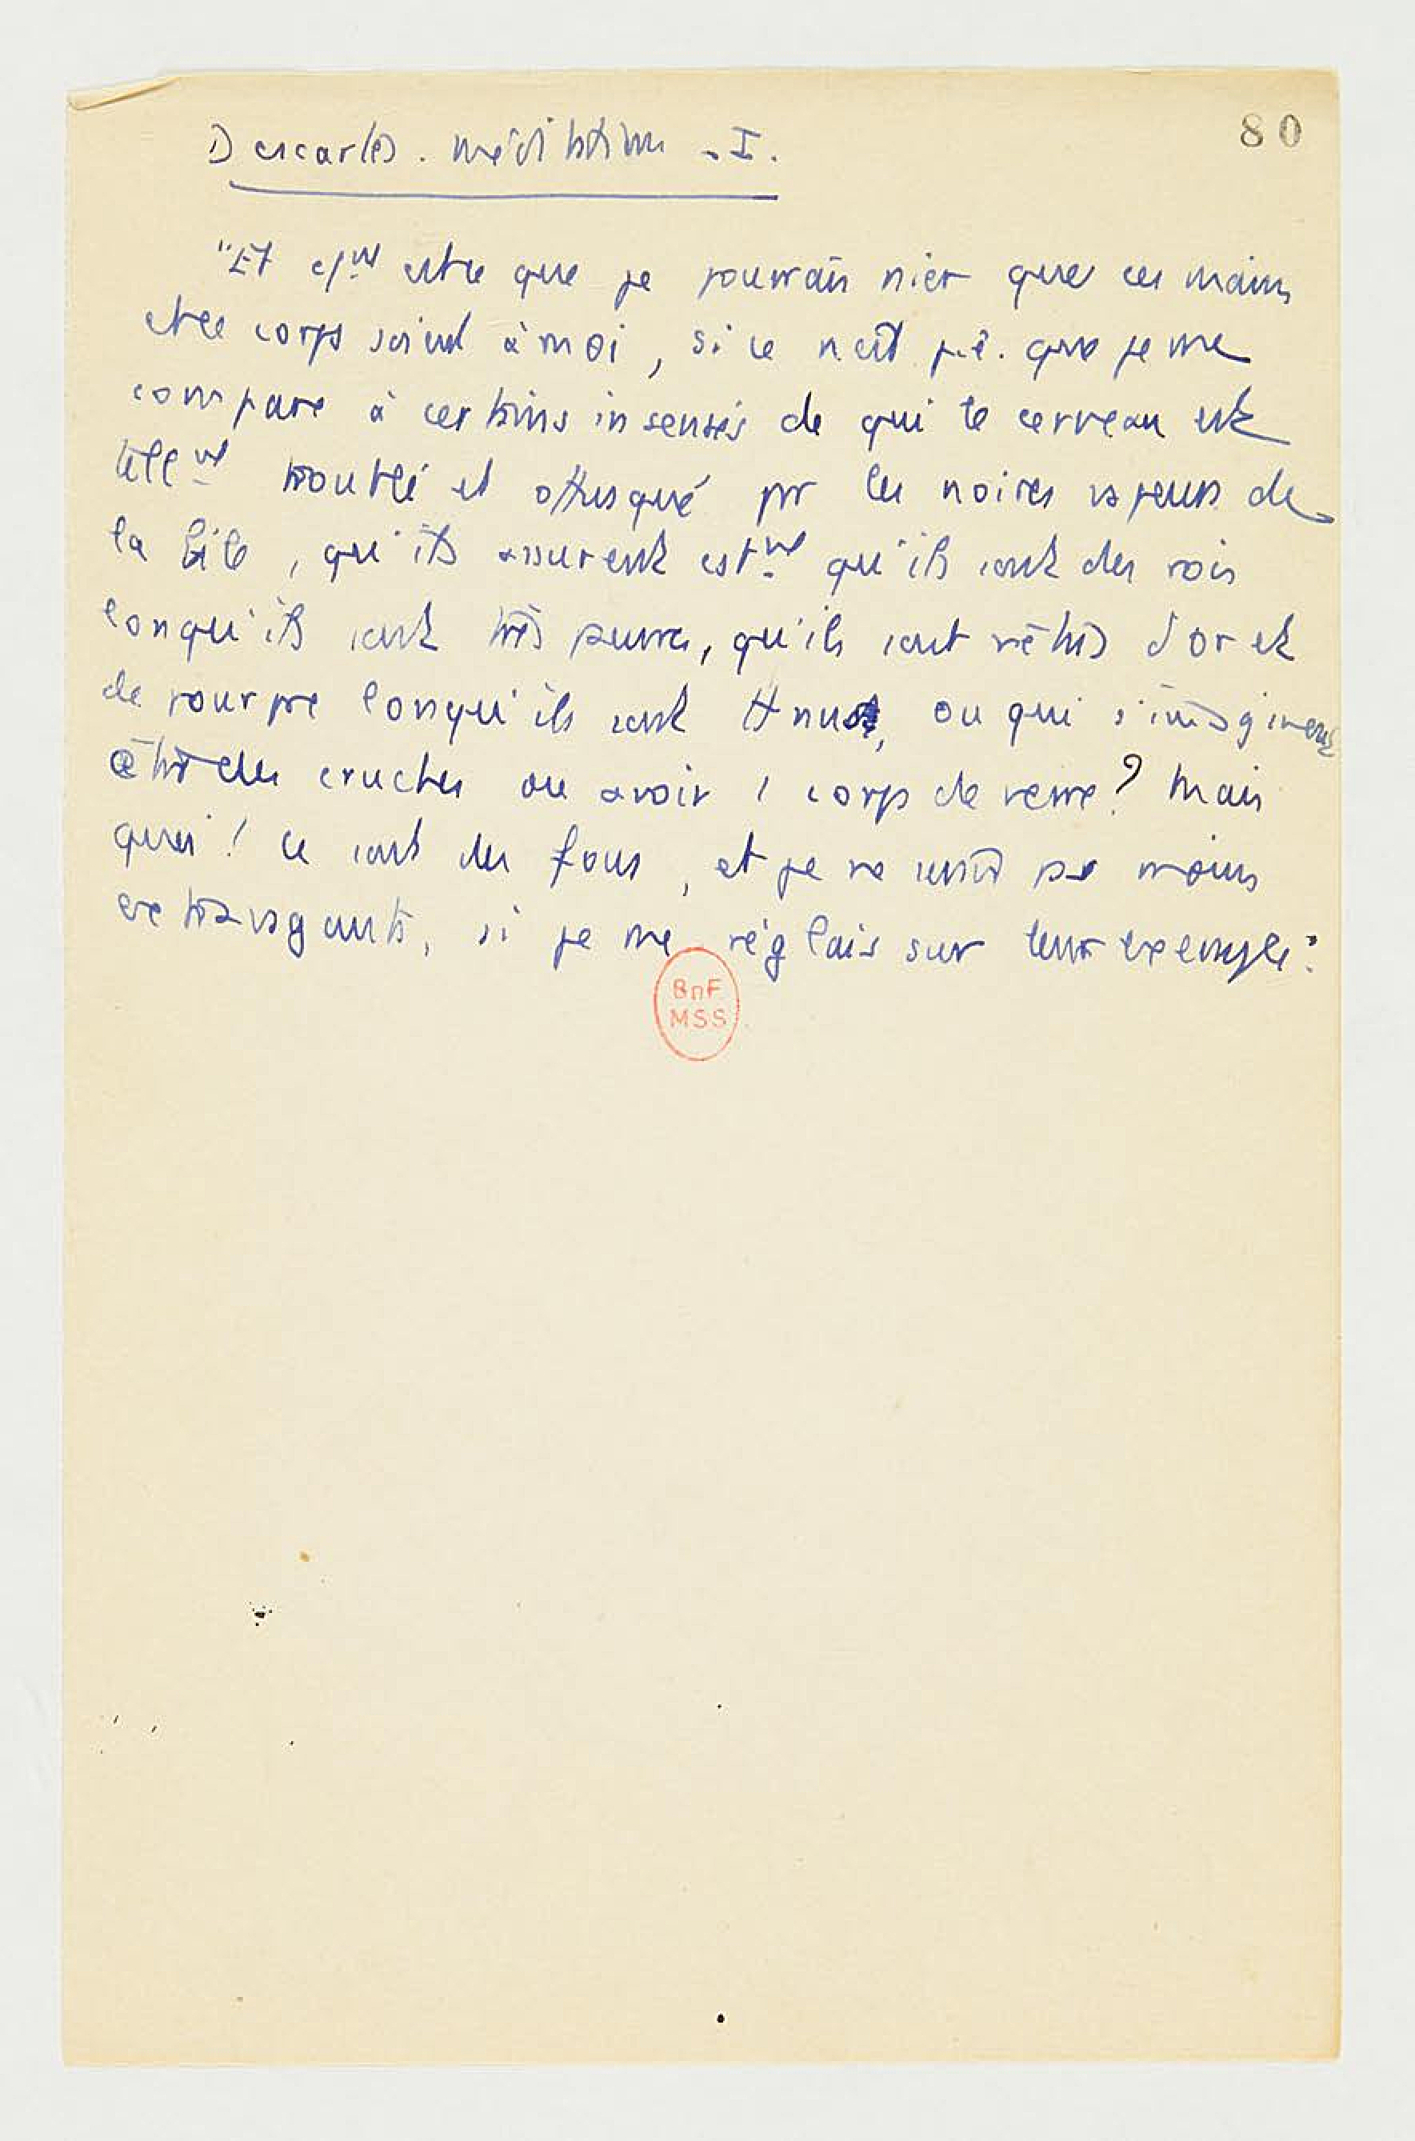 80
Descartes. Méditation - I.
"Et c/mt est-ce que je pourrais nier que ces mains
et ce corps soient à moi, si ce n'est p.ê. que je me
compare à certains insensés de qui le cerveau est
tellmt troublé et offusqué pr les noires vapeurs de
la bile, qu'ils assurent cstmt qu'ils sont des rois
lorsqu'ils sont très pauvres, qu'ils sont vêtus d'or et
de pourpre lorsqu'ils sont tt nus, ou qui s'imaginent
être des cruches ou avoir 1 corps de verre? Mais
quoi! ce sont des fous, et je ne serais pas moins
extravagants, si je me réglais sur leur exemple."
BnF
MSS